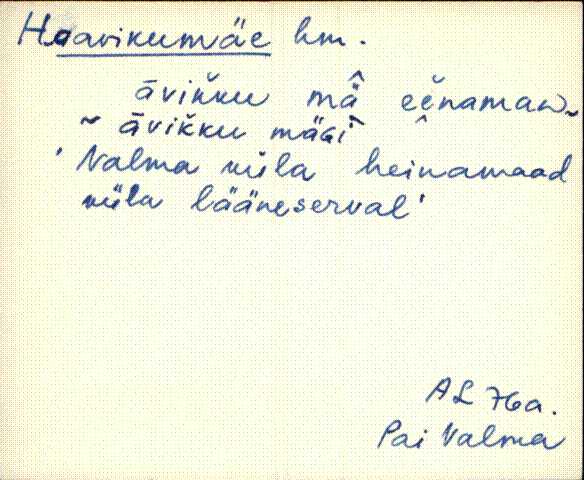 Haavikumäe hm.
āvikku mä̂ eĕnamaw
~ āvikku mäGî ~
'Nalma küla heinamaad
küla lääneserval'
AL 76a.
Pai Nalma